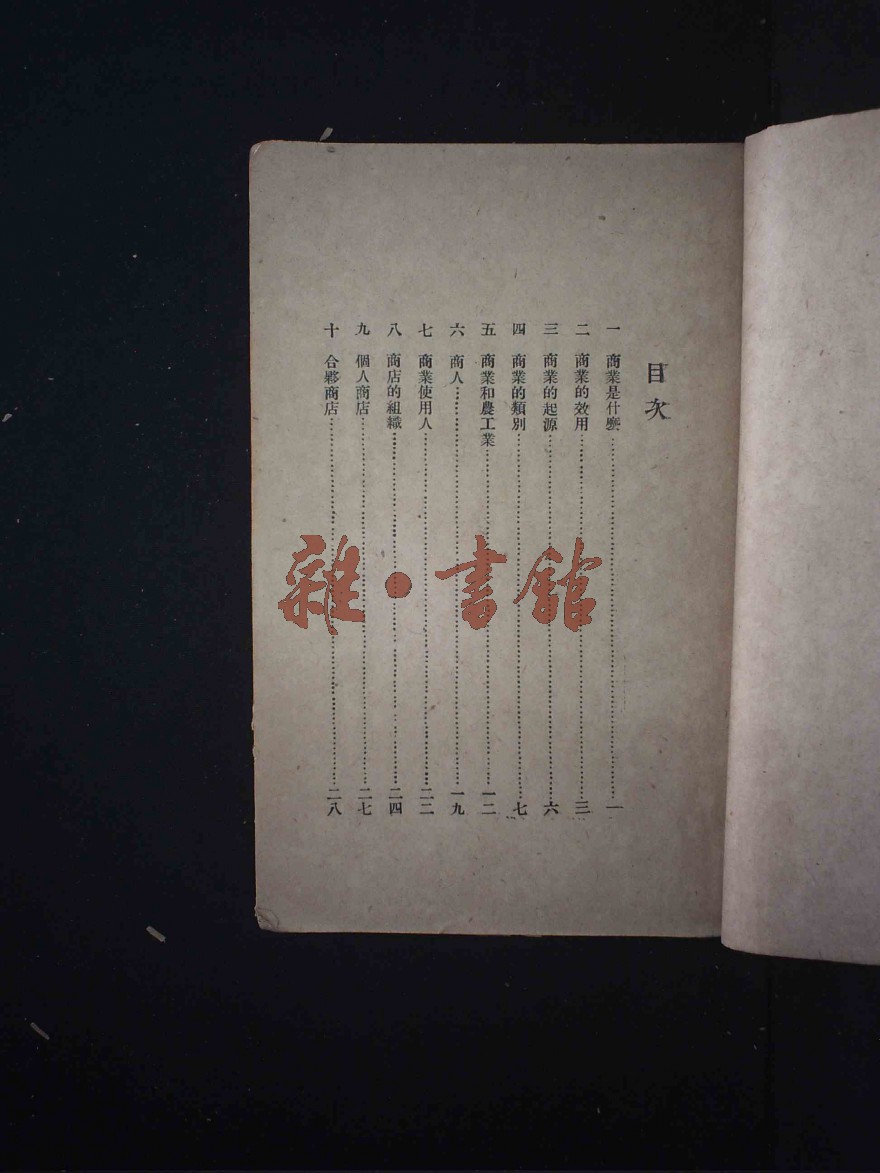 目次
一 商業是什麼…………一
二 商業的效用…………三
三 商業的起源…………六
四 商業的類別…………七
五 商業和農工業…………一二
六 商人…………一九
七 商業使用人…………二二
八 商店的組織…………二四
九 個人商店…………二七
十 合夥商店…………二八
雜·書館